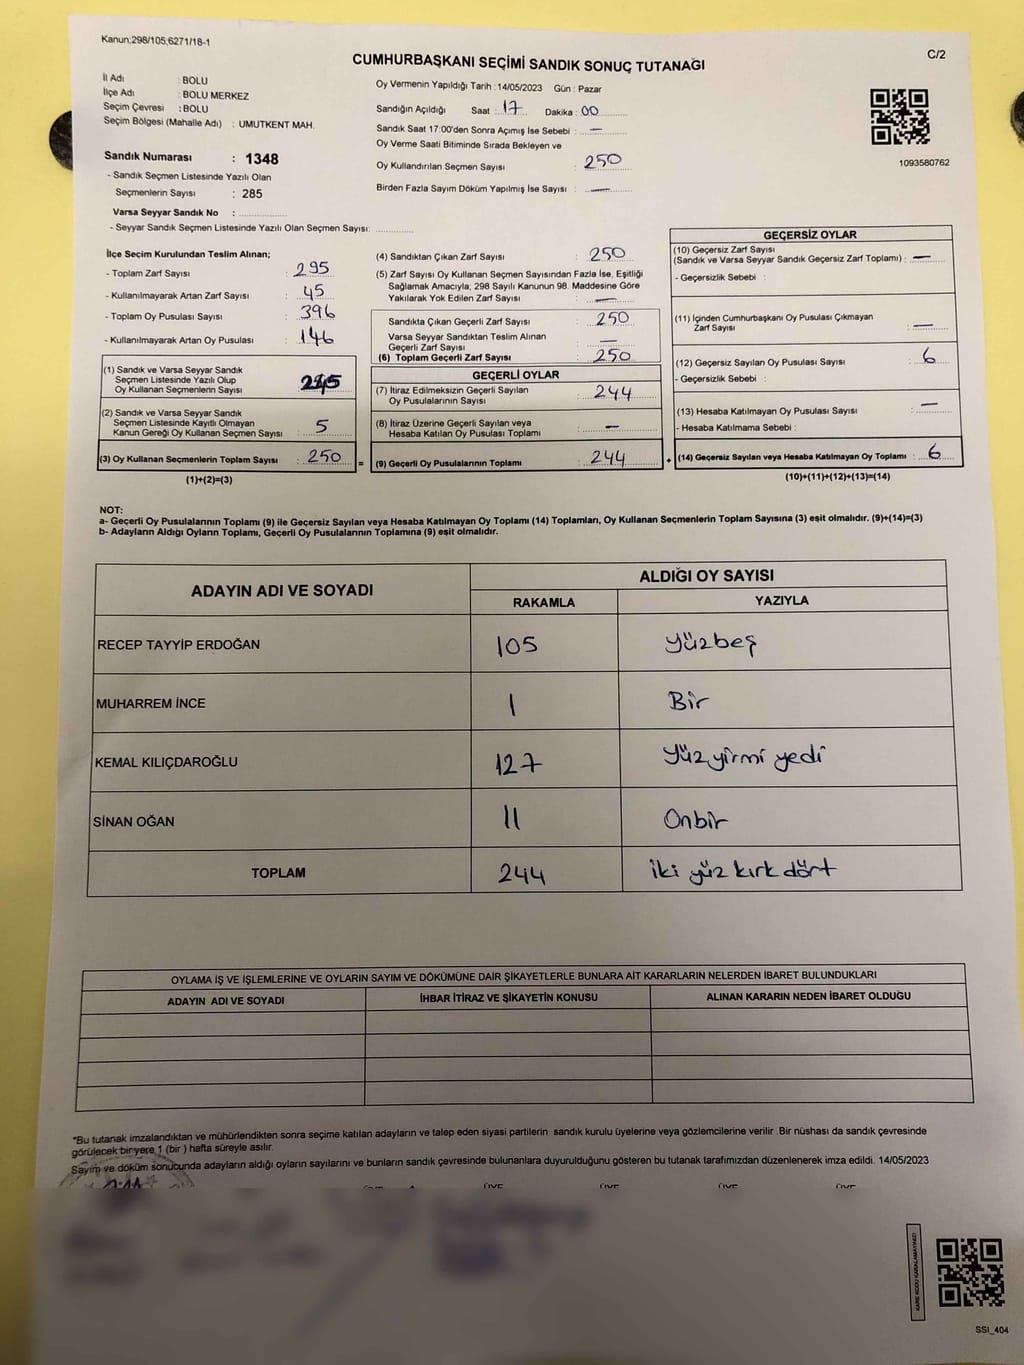 Kanun;298/105,6271/18-1
C/2
CUMHURBAŞKANI SEÇİMİ SANDIK SONUÇ TUTANAĞI
İl Adı : BOLU
İlçe Adı : BOLU MERKEZ
Seçim Çevresi : BOLU
Seçim Bölgesi (Mahalle Adı) : UMUTKENT MAH.
Sandık Numarası : 1348
- Sandık Seçmen Listesinde Yazılı Olan
Seçmenlerin Sayısı : 285
Varsa Seyyar Sandık No :
- Seyyar Sandık Seçmen Listesinde Yazılı Olan Seçmen Sayısı:
Oy Vermenin Yapıldığı Tarih :14/05/2023 Gün : Pazar
Sandığın Açıldığı Saat : 17 Dakika : 00
Sandık Saat 17:00'den Sonra Açımış İse Sebebi : —
Oy Verme Saati Bitiminde Sırada Bekleyen ve
Oy Kullandırılan Seçmen Sayısı : 250
Birden Fazla Sayım Döküm Yapılmış İse Sayısı : —
1093580762
İlçe Seçim Kurulundan Teslim Alınan;
- Toplam Zarf Sayısı : 295
- Kullanılmayarak Artan Zarf Sayısı : 45
- Toplam Oy Pusulası Sayısı : 396
- Kullanılmayarak Artan Oy Pusulası : 146
(1) Sandık ve Varsa Seyyar Sandık
Seçmen Listesinde Yazılı Olup
Oy Kullanan Seçmenlerin Sayısı :
(2) Sandık ve Varsa Seyyar Sandık
Seçmen Listesinde Kayıtlı Olmayan
Kanun Gereği Oy Kullanan Seçmen Sayısı : 5
(3) Oy Kullanan Seçmenlerin Toplam Sayısı : 250
(1)+(2)=(3)
=
(4) Sandıktan Çıkan Zarf Sayısı : 250
(5) Zarf Sayısı Oy Kullanan Seçmen Sayısından Fazla İse, Eşitliği
Sağlamak Amacıyla; 298 Sayılı Kanunun 98. Maddesine Göre
Yakılarak Yok Edilen Zarf Sayısı : —
Sandıkta Çıkan Geçerli Zarf Sayısı : 250
Varsa Seyyar Sandıktan Teslim Alınan
Geçerli Zarf Sayısı : —
(6) Toplam Geçerli Zarf Sayısı : 250
GEÇERLİ OYLAR
(7) İtiraz Edilmeksizin Geçerli Sayılan
Oy Pusulalarının Sayısı : 244
(8) İtiraz Üzerine Geçerli Sayılan veya
Hesaba Katılan Oy Pusulası Toplamı : —
(9) Geçerli Oy Pusulalarının Toplamı : 244
+
GEÇERSİZ OYLAR
(10) Geçersiz Zarf Sayısı
(Sandık ve Varsa Seyyar Sandık Geçersiz Zarf Toplamı) : —
- Geçersizlik Sebebi :
(11) İçinden Cumhurbaşkanı Oy Pusulası Çıkmayan
Zarf Sayısı : —
(12) Geçersiz Sayılan Oy Pusulası Sayısı : 6
- Geçersizlik Sebebi :
(13) Hesaba Katılmayan Oy Pusulası Sayısı : —
- Hesaba Katılmama Sebebi :
(14) Geçersiz Sayılan veya Hesaba Katılmayan Oy Toplamı : 6
(10)+(11)+(12)+(13)=(14)
NOT:
a- Geçerli Oy Pusulalarının Toplamı (9) ile Geçersiz Sayılan veya Hesaba Katılmayan Oy Toplamı (14) Toplamları, Oy Kullanan Seçmenlerin Toplam Sayısına (3) eşit olmalıdır. (9)+(14)=(3)
b- Adayların Aldığı Oyların Toplamı, Geçerli Oy Pusulalarının Toplamına (9) eşit olmalıdır.
ADAYIN ADI VE SOYADI ALDIĞI OY SAYISI
RAKAMLA YAZIYLA
RECEP TAYYİP ERDOĞAN 105 Yüzbeş
MUHARREM İNCE 1 Bir
KEMAL KILIÇDAROĞLU 127 Yüz yirmi yedi
SİNAN OĞAN 11 Onbir
TOPLAM 244 iki yüz kırk dört
OYLAMA İŞ VE İŞLEMLERİNE VE OYLARIN SAYIM VE DÖKÜMÜNE DAİR ŞİKAYETLERLE BUNLARA AİT KARARLARIN NELERDEN İBARET BULUNDUKLARI
ADAYIN ADI VE SOYADI İHBAR İTİRAZ VE ŞİKAYETİN KONUSU ALINAN KARARIN NEDEN İBARET OLDUĞU
*Bu tutanak imzalandıktan ve mühürlendikten sonra seçime katılan adayların ve talep eden siyasi partilerin sandık kurulu üyelerine veya gözlemcilerine verilir .Bir nüshası da sandık çevresinde
görülecek bir yere 1 (bir ) hafta süreyle asılır.
Sayım ve döküm sonucunda adayların aldığı oyların sayılarını ve bunların sandık çevresinde bulunanlara duyurulduğunu gösteren bu tutanak tarafımızdan düzenlenerek imza edildi. 14/05/2023
KARE KODU KARALAMAYINIZ!
SSI_404